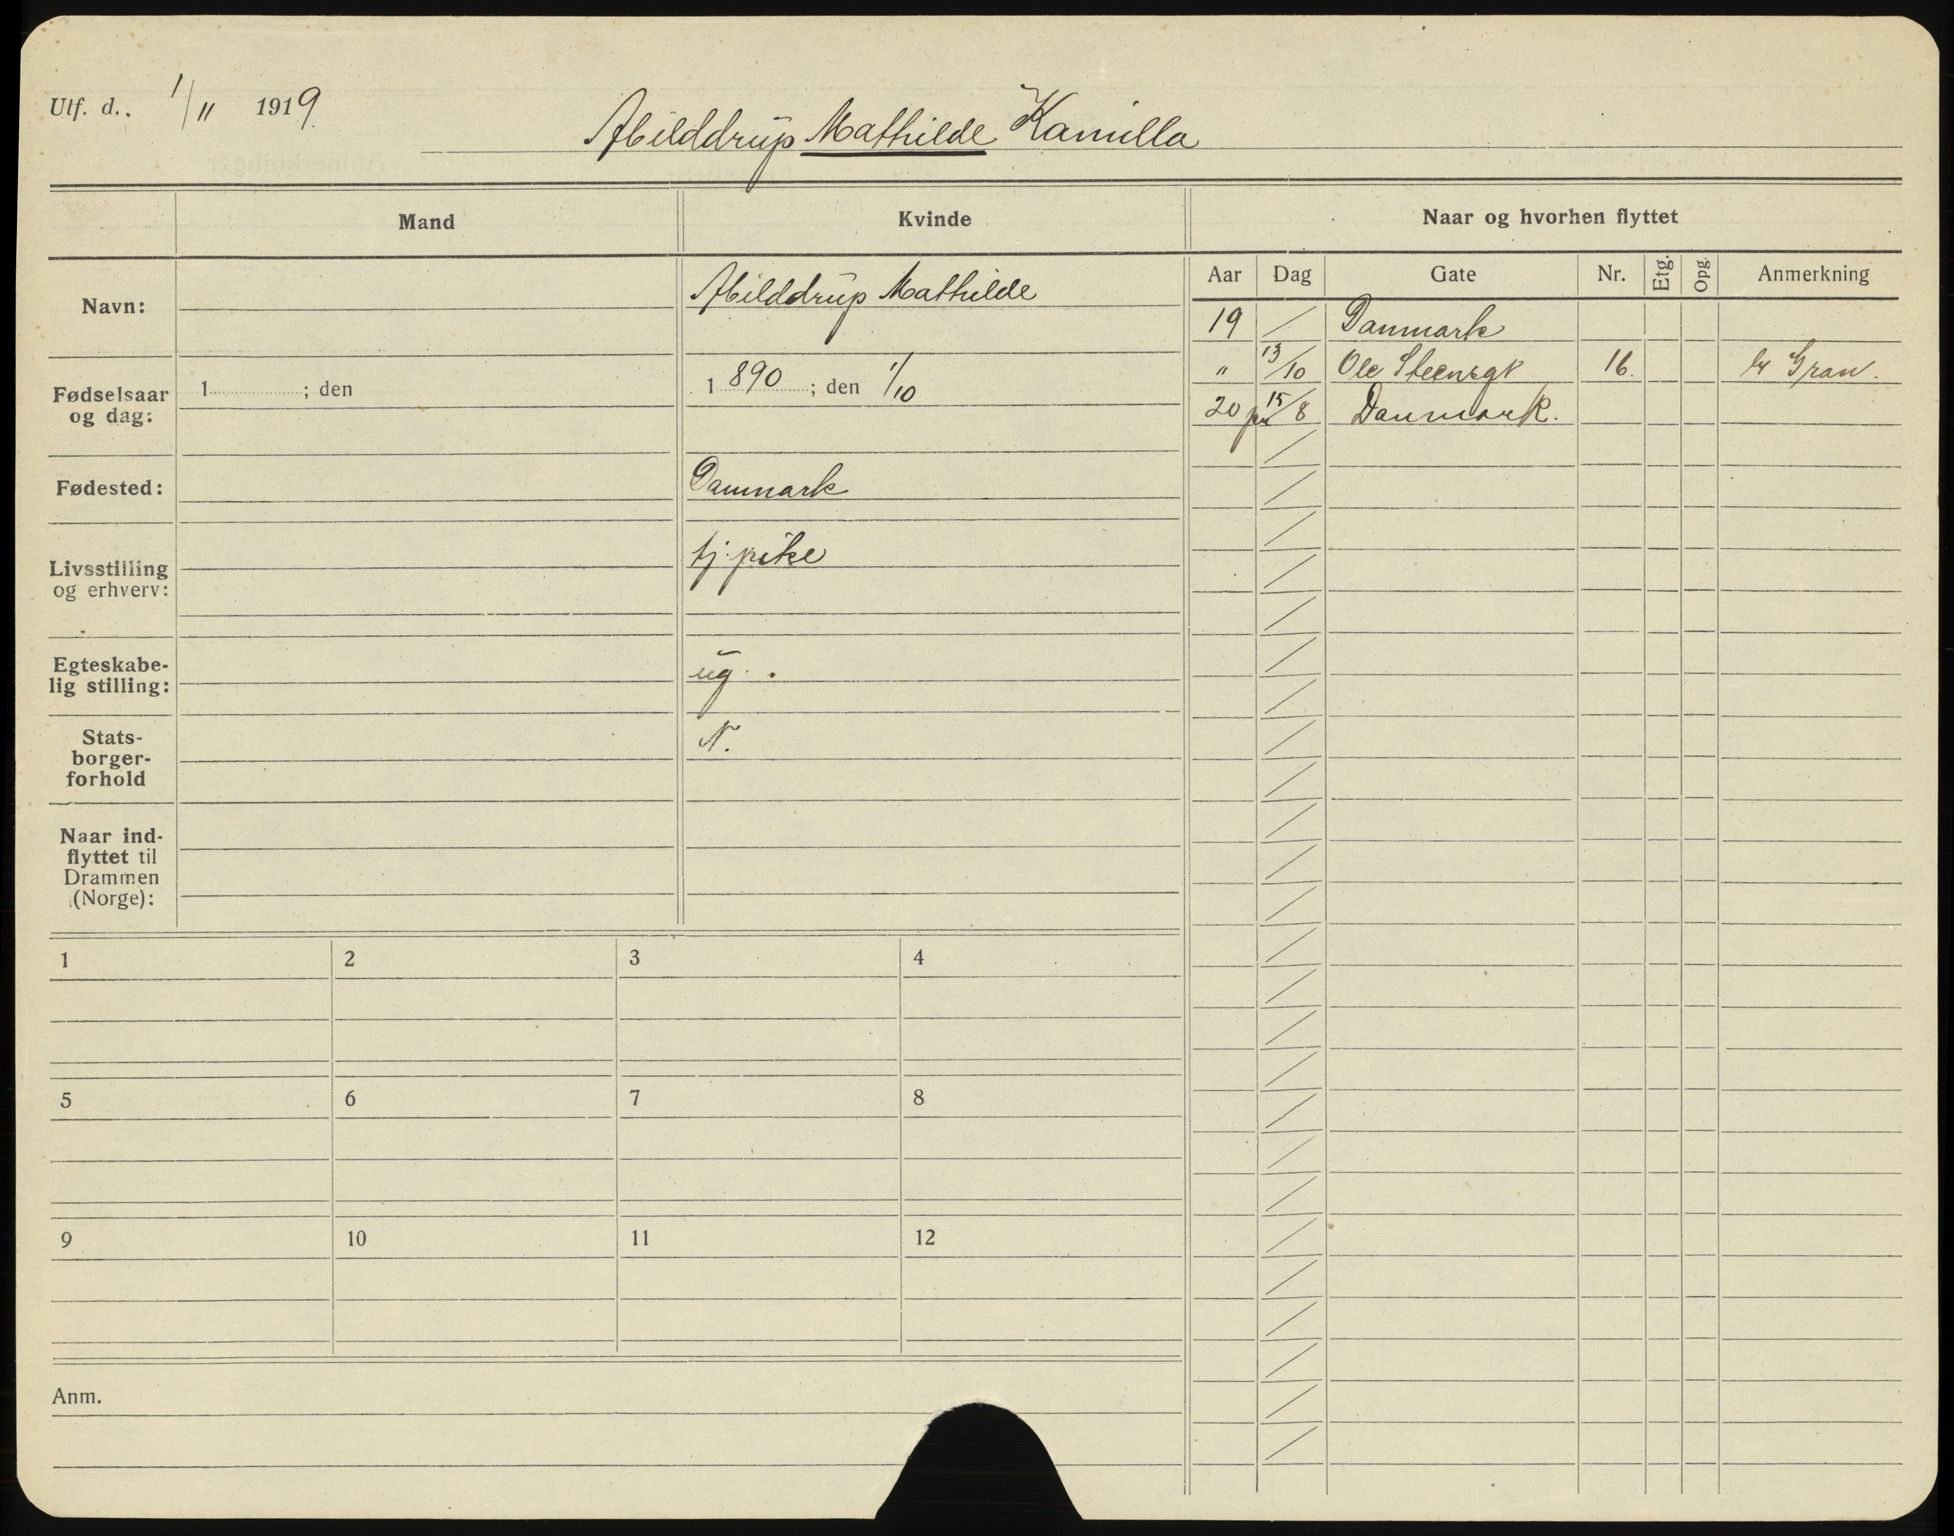 Utf. d. 1/11 1919.
Abilddrup Mathilde Kamilla
Mand Kvinde Naar og hvorhen flyttet
Aar Dag Gate Nr. Etg. Opg. Anmerkning
Navn: Abilddrup Mathilde
19 / Danmark
" 13/10 Ole Steensgt 16. Gran.
20 15/8 Danmark.
Fødselsaar og dag: 1 ; den 1 890 ; den 1/10
Fødested: Danmark
Livsstilling og erhverv: tj. pike
Egteskabe-
lig stilling: ug.
Stats-
borger-
forhold N.
Naar ind-
flyttet til
Drammen
(Norge):
1 2 3 4
5 6 7 8
9 10 11 12
Anm.